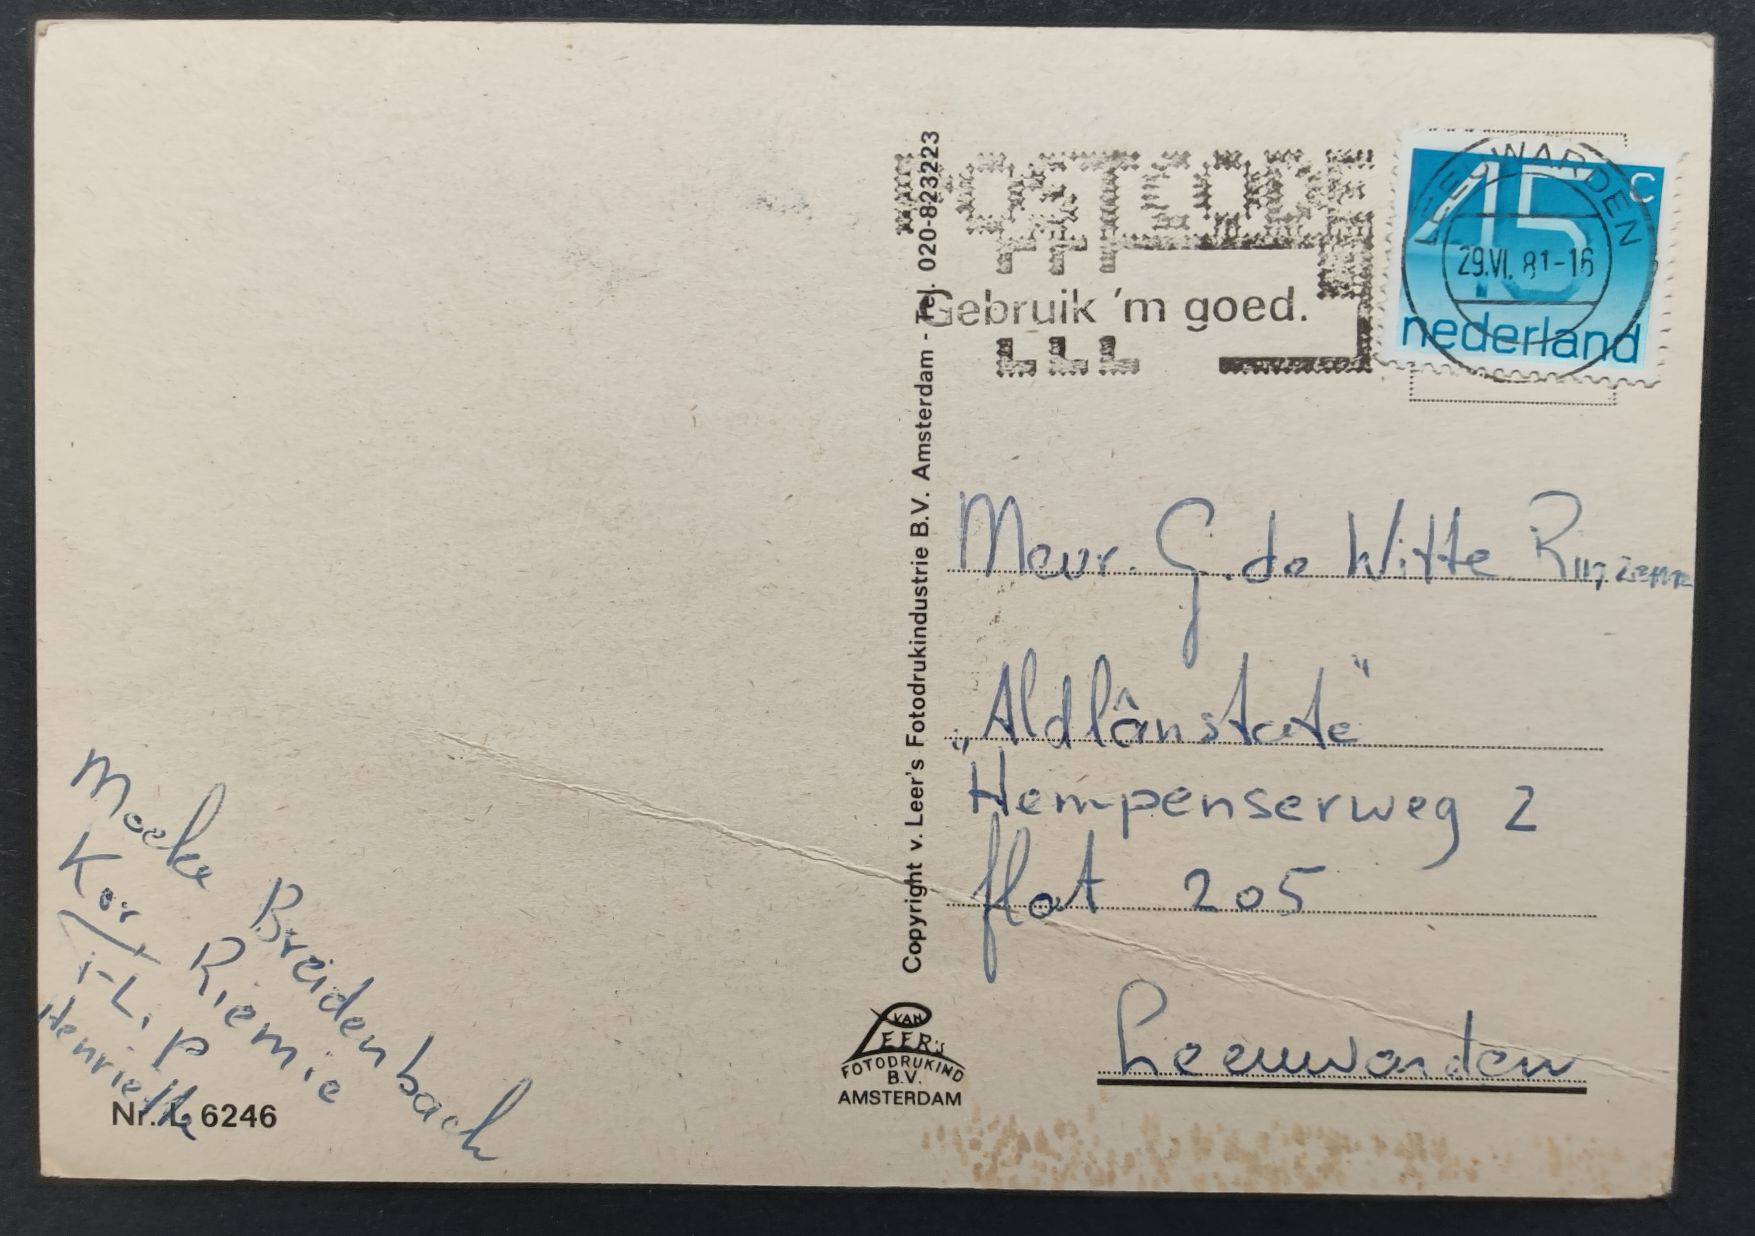 POSTCODE
Gebruik 'm goed.
45 c
LEEUWARDEN
29.VI. 81-16
nederland
Copyright v. Leer's Fotodrukindustrie B.V. Amsterdam - Tel. 020-823223
Mevr. G. de Witte
„Aldlânstate"
Hempenserweg 2
flat 205
Leeuwarden
Moeke Breidenbach
Kor, Riemie
Henriette
Nr. L 6246
VAN
LEER'S
FOTODRUKIND
B.V.
AMSTERDAM